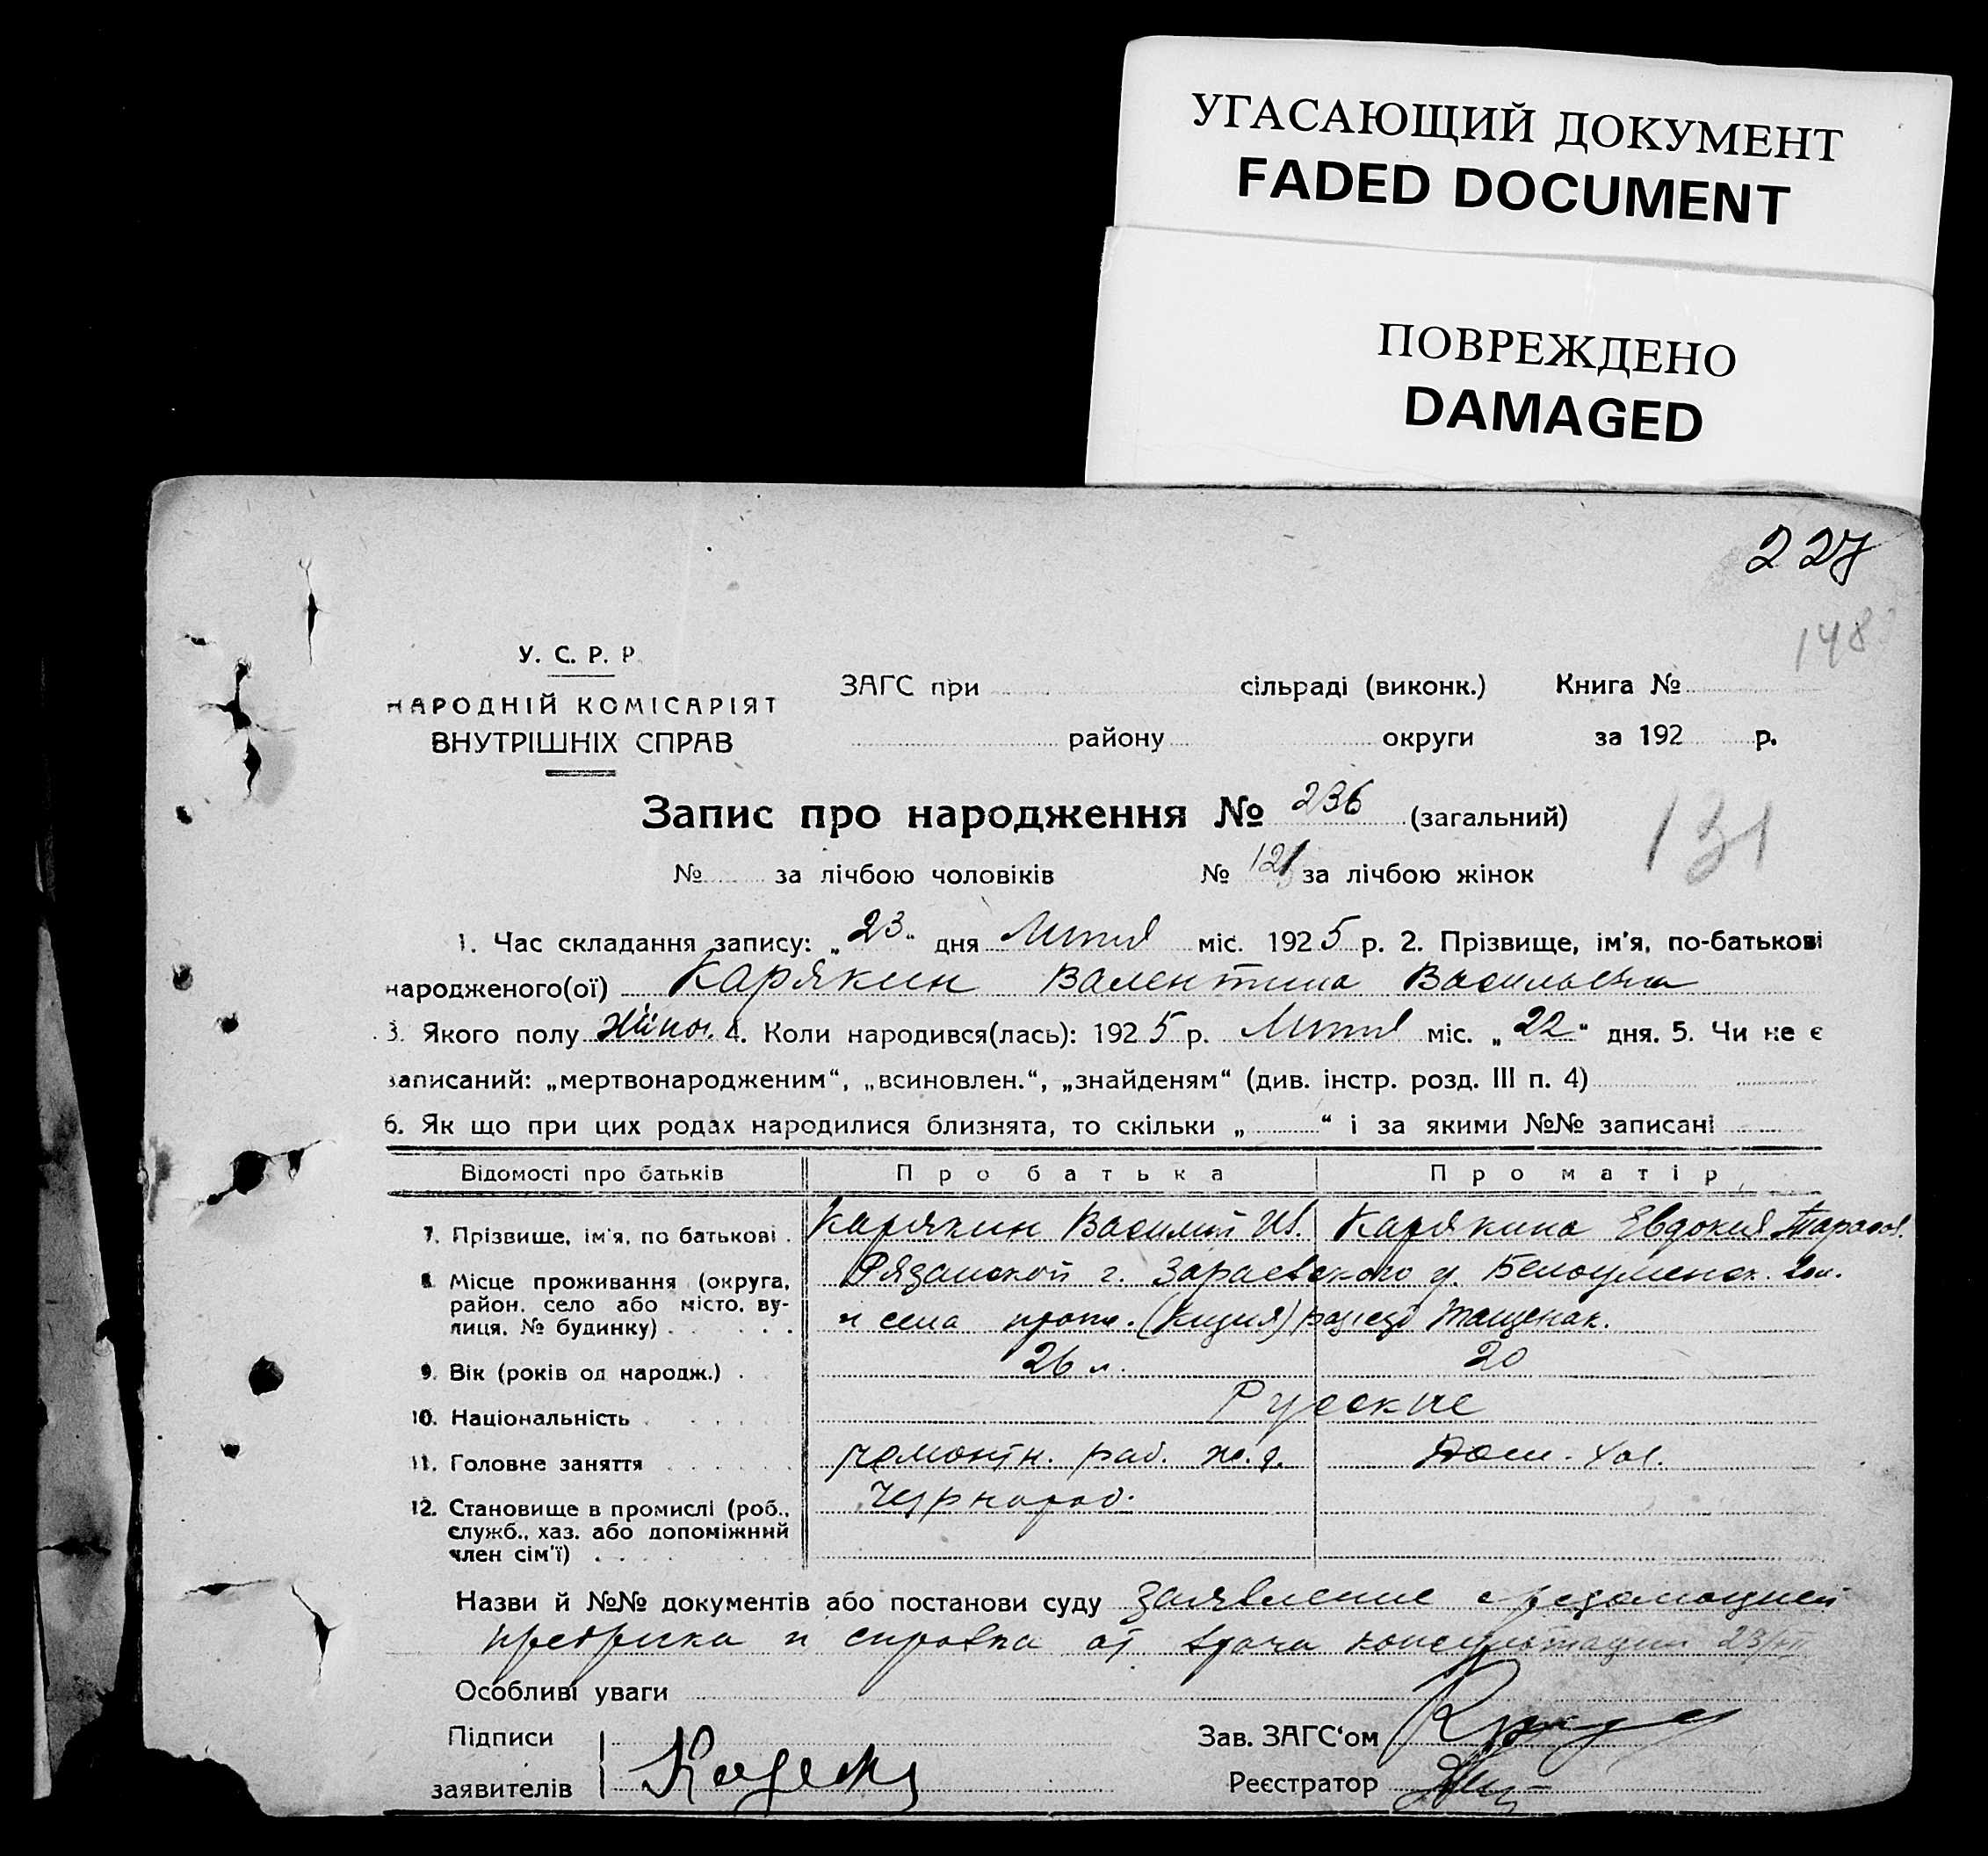 УГАСАЮЩИЙ ДОКУМЕНТ
FADED DOCUMENT
ПОВРЕЖДЕНО
DAMAGED
227
148
У. С. Р. Р.
НАРОДНІЙ КОМІСАРІЯТ
ВНУТРІШНІХ СПРАВ
ЗАГС при сільраді (виконк.) Книга №
району округи за 192 р.
Запис про народження № 236 (загальний)
131
№ за лічбою чоловіків № 121 за лічбою жінок
1. Час складання запису: „23“ дня міс. 1925 р. 2. Прізвище, ім'я, по-батькові
народженого(ої) Карякин Валентина Васильевна
3. Якого полу 4. Коли народився(лась): 1925 р. міс. „22“ дня. 5. Чи не є
записаний: „мертвонародженим“, „всиновлен.“, „знайденям“ (див. інстр. розд. III п. 4)
6. Як що при цих родах народилися близнята, то скільки „ “ і за якими №№ записані
Відомості про батьків Про батька Про матір
7. Прізвище, ім'я, по батькові Карякин Василий Ив. Карякина Евдокия Тарасов.
8. Місце проживання (округа, район, село або місто, вулиця, № будинку) Рязанской г. Зараевского у.
и села разъезд Тащенак.
9. Вік (років од народж.) 26 л. 20
10. Національність Русские
11. Головне заняття ремонтн. раб. ж.д. Дом. хоз.
12. Становище в промислі (роб., служб., хаз. або допоміжний член сім'ї) Чернораб.
Назви й №№ документів або постанови суду заявление с резолюцией
и справка от врача консультации 23/VII
Особливі уваги
Підписи Зав. ЗАГС'ом
заявителів Реєстратор